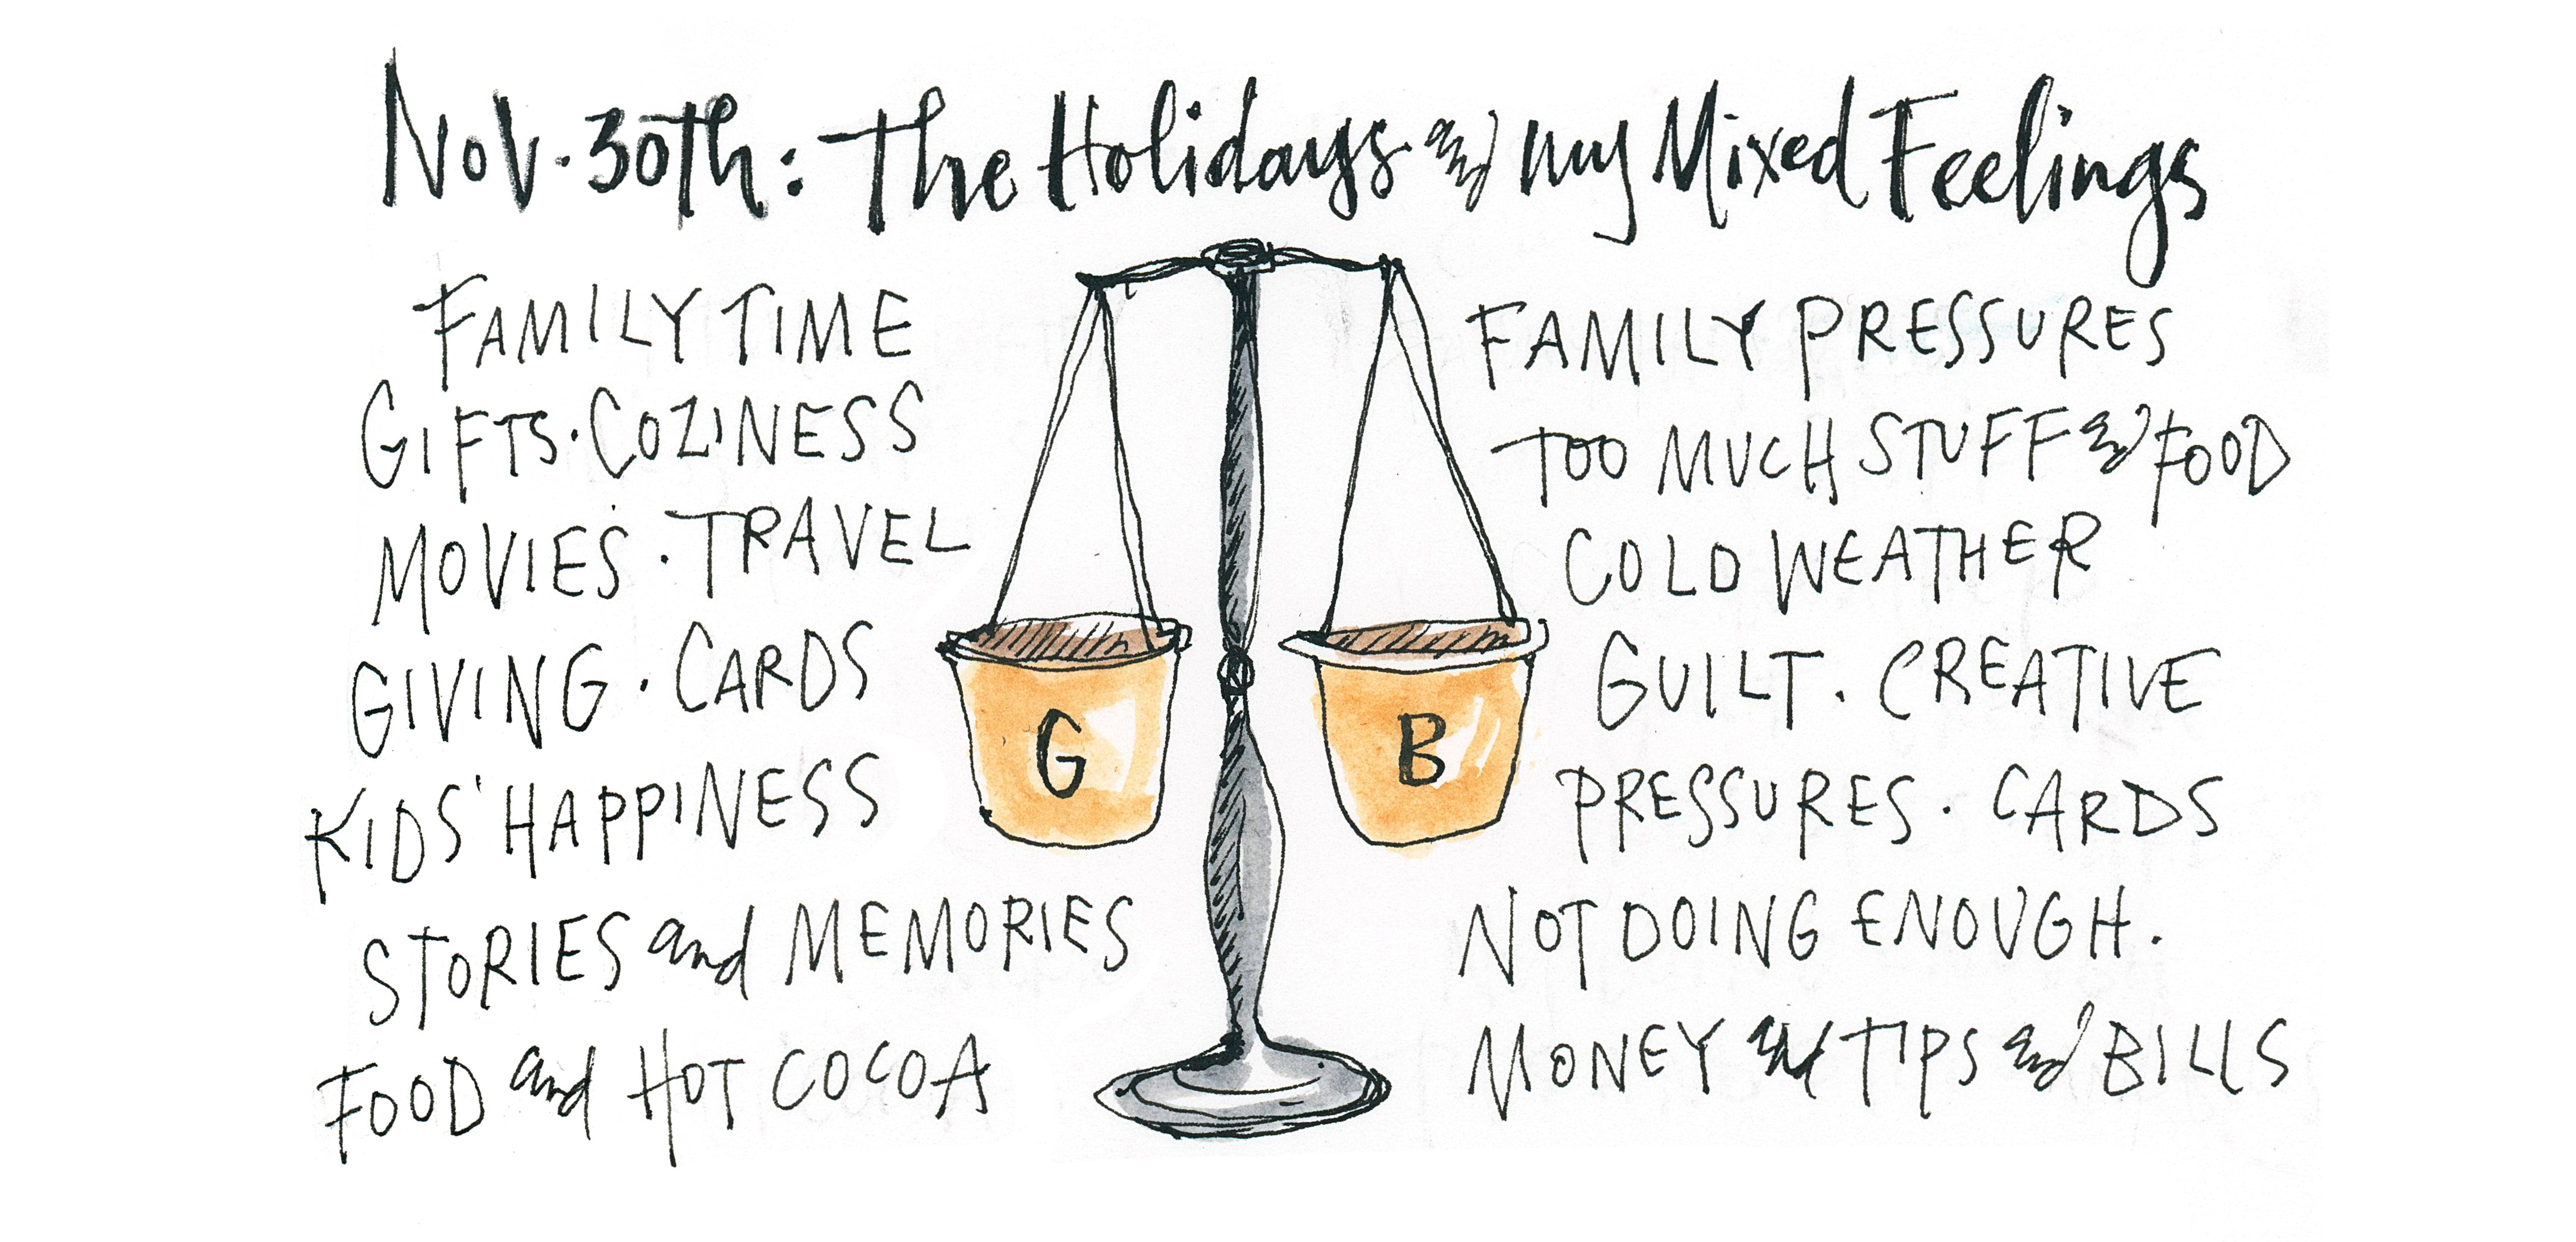 Nov. 30th: The Holidays and my Mixed Feelings
FAMILY TIME
GIFTS · COZINESS
MOVIES · TRAVEL
GIVING · CARDS
KIDS' HAPPINESS
STORIES and MEMORIES
FOOD and HOT COCOA
G
B
FAMILY PRESSURES
TOO MUCH STUFF and FOOD
COLD WEATHER
GUILT . CREATIVE
PRESSURES . CARDS
NOT DOING ENOUGH .
MONEY and TIPS and BILLS